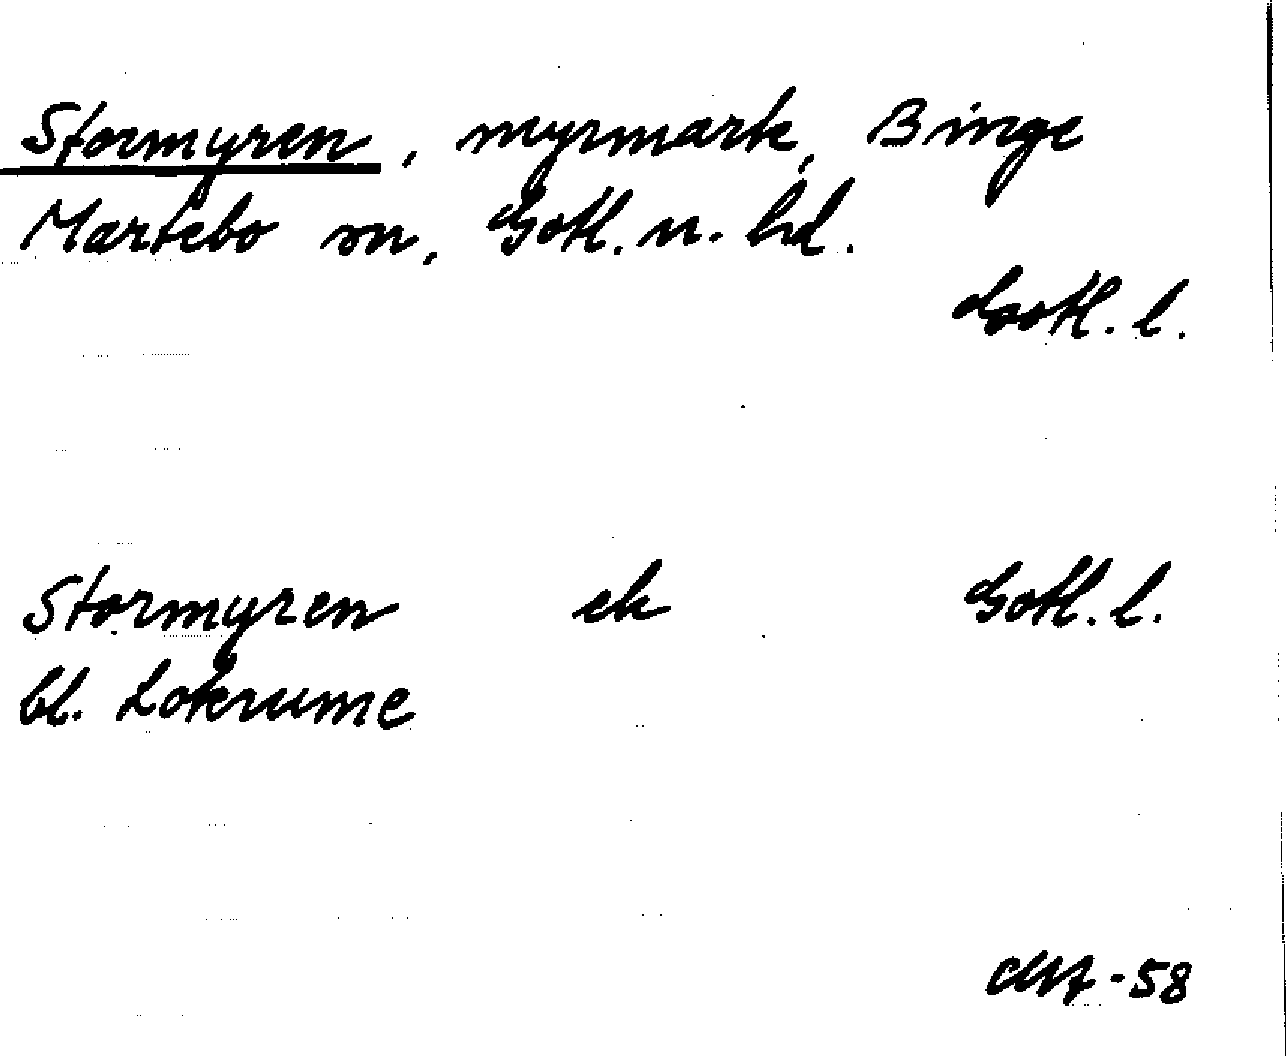 Stormyren, myrmark, Binge
Martebo sn, Gotl. n. hd.
Gotl. l.
Stormyren ek Gotl. l.
bl. Lokrume
-58